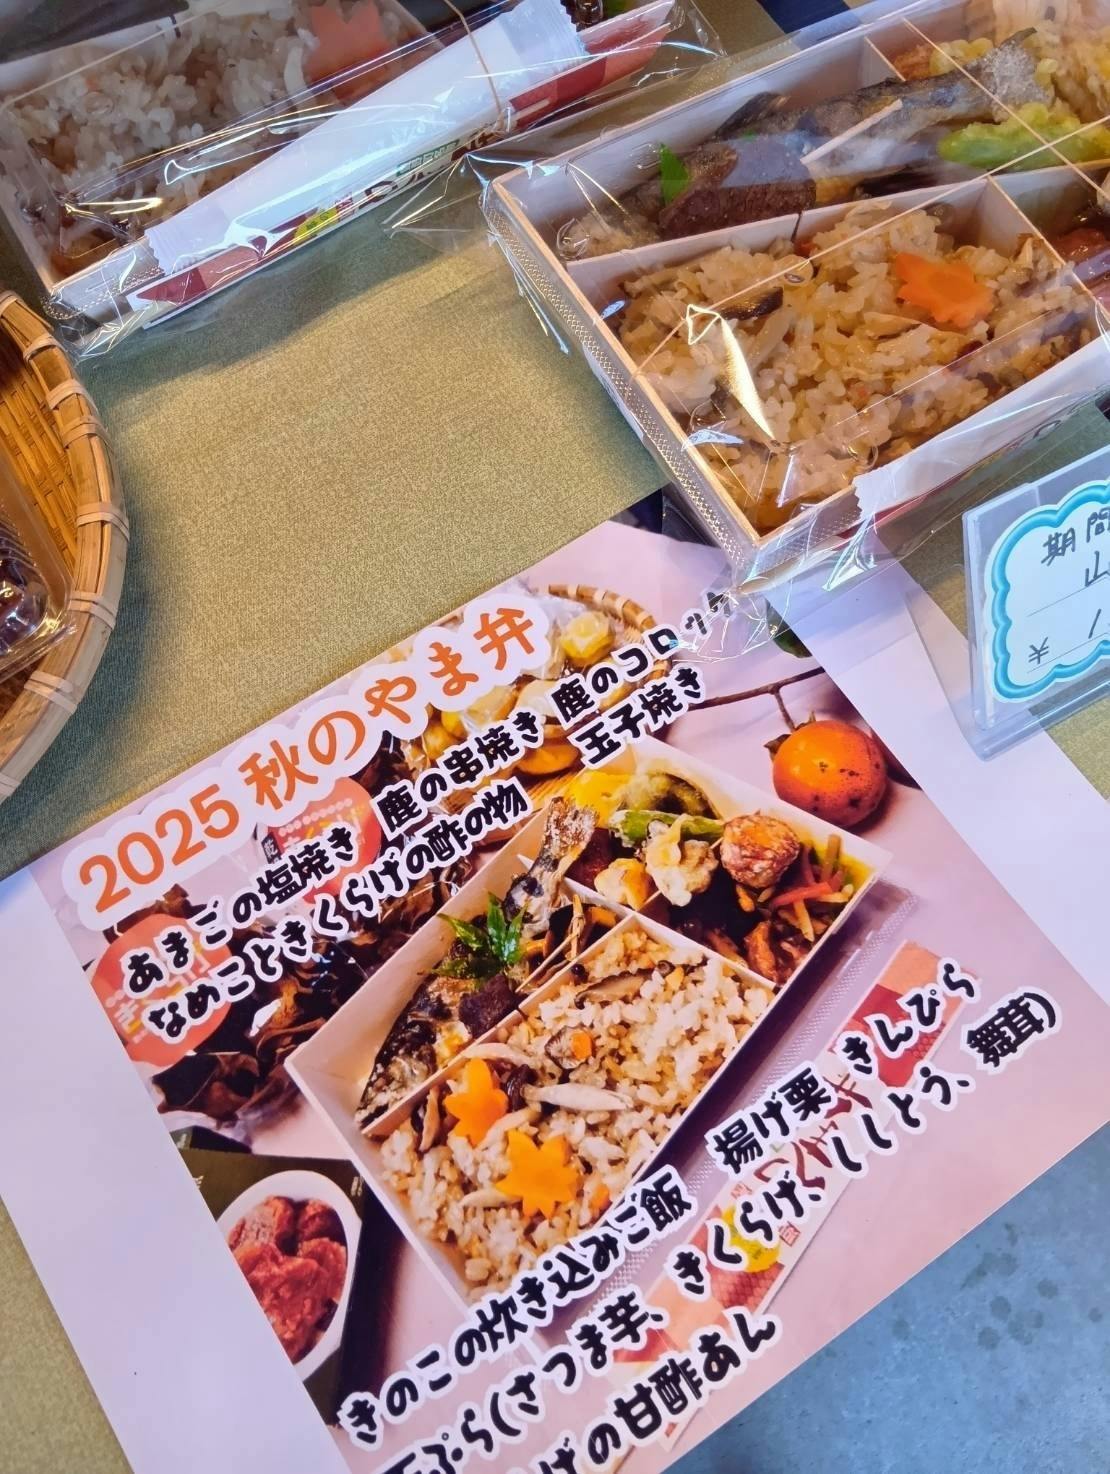 2025 秋のやま弁
あまごの塩焼き 鹿の串焼き 鹿のコロッケ
なめこときくらげの酢の物 玉子焼き
きのこの炊き込みご飯 揚げ栗 きんぴら
天ぷら(さつま芋、きくらげ、ししとう、舞茸)
げの甘酢あん
期間
山
¥1